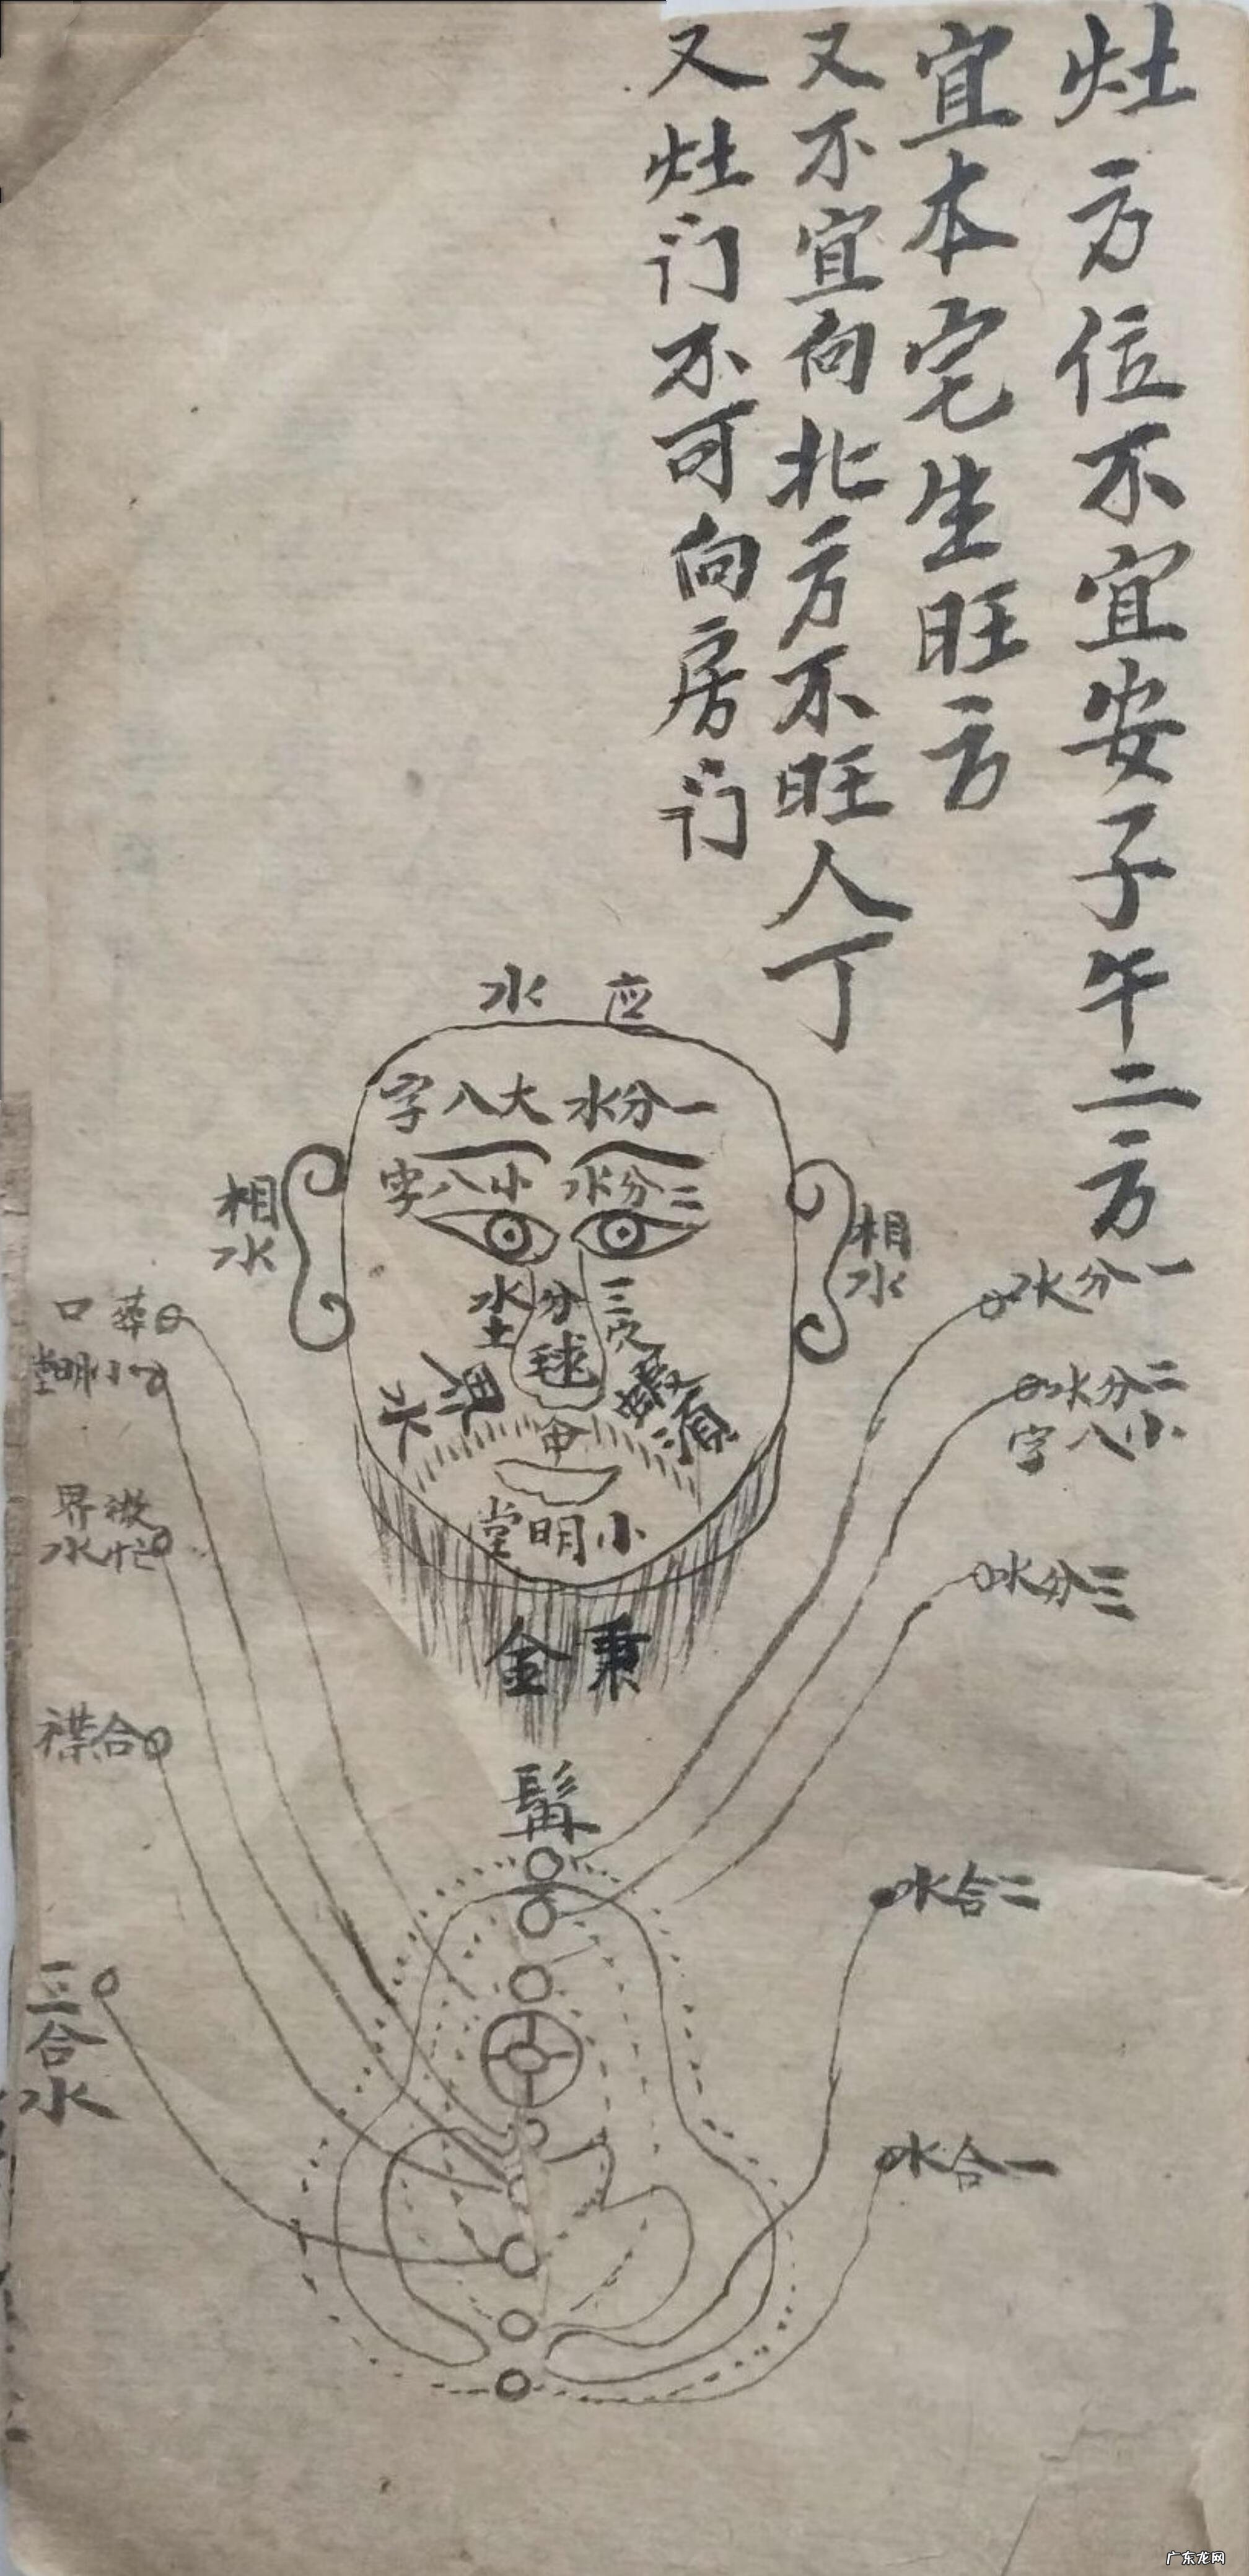 灶方位不宜安子午二方
宜本宅生旺方
又不宜向北方不旺人丁
又灶门不可向房门
应水
一分水
大八字
二分水
小八字
相水
相水
三分水
穴土
毬
界水
蝦须
小明堂
秉金
一分水
二分水
小八字
三分水
二合水
一合水
葬口
小明堂
微茫
界水
合襟
三合水
广东龙网